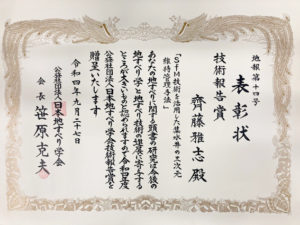 地報第十四号
表彰状
技術報告賞
齊藤雅志殿
「SfM技術を活用した集水井の三次元
維持管理手法」
あなたの地すべりに関する頭書の研究は今後の
地すべり学と地すべり技術の発展に寄与する
ところが大きいものと認められますので令和四年度
公益社団法人日本地すべり学会技術報告賞を
贈呈いたします
令和四年九月二十七日
公益社団法人日本地すべり学会
会長 笹原克夫